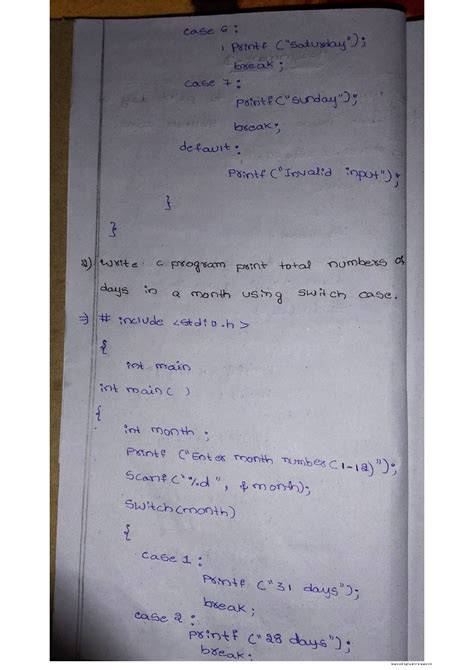 case 6:
printf ("saturday");
break;
case 7:
printf("sunday");
break;
default:
printf("Invalid input");
}
}
write c program print total numbers of
days in a month using switch case.
⇒ # include <stdio.h>
{
int main
int main( )
{
int month ;
printf ("Enter month number(1-12)");
scanf("%d", &month);
switch(month)
{
case 1 :
printf ("31 days");
break;
case 2 :
printf ("28 days");
break;